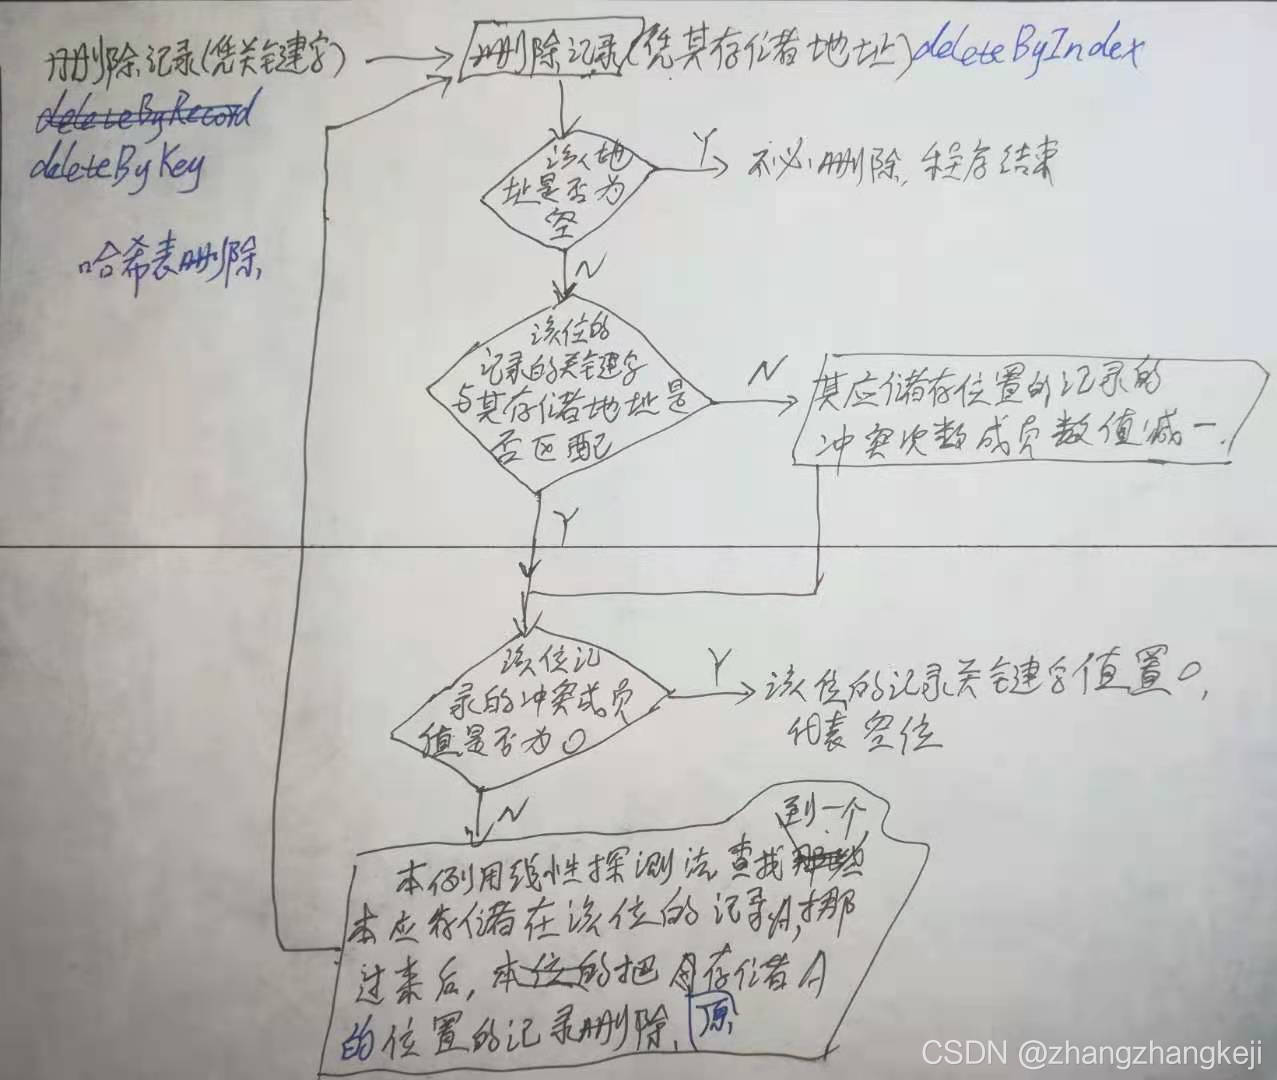 删除记录(凭关键字)
删除记录(凭其存储地址)deleteByIndex
deleteByRecord
deleteByKey
哈希表删除
该地
址是否为
空
Y
不必删除,程序结束
N
该位的
记录的关键字
与其存储地址是
否匹配
N
其应储存位置的记录的
冲突次数成员数值减一.
Y
该位记
录的冲突成员
值是否为0
Y
该位的记录关键字值置0,
代表空位
N
到一个
本例用线性探测法查找那些
本应存储在该位的记录A,挪
过来后,本位的把A存储A
的位置的记录删除. 原
CSDN @zhangzhangkeji